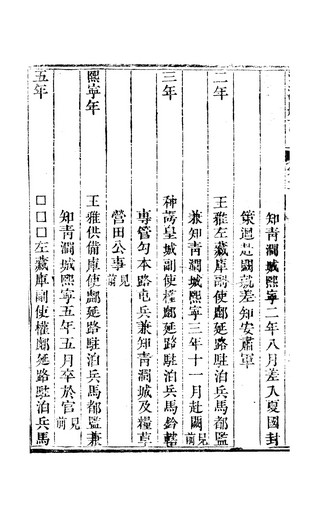 知青澗城熙寧二年八月差入夏國封
策迴赴闕就差知安肅軍
二年
王雅左藏庫副使鄜延路駐泊兵馬都監
兼知青澗城熙寧三年十一月赴闕見前
三年
种諤皇城副使權鄜延路駐泊兵馬鈐轄
專管勾本路屯兵兼知青澗城及糧草
營田公事見前
熙寧年
王雅供備庫使鄜延路駐泊兵馬都監兼
知青澗城熙寧五年五月卒於官見前
五年
□□□左藏庫副使權鄜延路駐泊兵馬